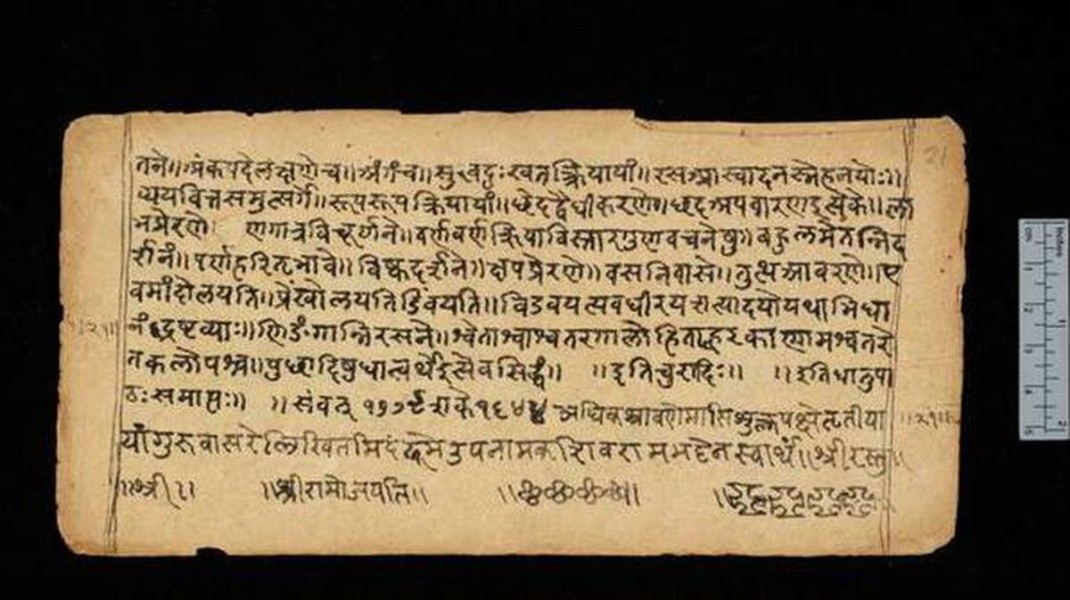 तने॥अंकपदेलक्षणेच॥अंगंच॥सुखदुःखतत्क्रियायां॥रसआस्वादनस्नेहनयोः॥
व्ययवित्तसमुत्सर्गे॥रूपरूपक्रियायां॥छेदद्वैधीकरणे॥छदअपवारणइत्येके॥ला
भप्रेरणे॥ व्रणगात्रविचूर्णने॥वर्णवर्णक्रियाविस्तारगुणवचनेषु॥बहुलमेतन्निद
र्शनं॥पर्णहरितभावे॥विष्कदर्शने॥क्षपप्रेरणे॥वसनिवासे॥तुत्थआवरणे॥ए
वमांदोलयति॥प्रेंखोलयतिडिंबयति॥विडंबयत्यवधीरय इत्यादयोयथाभिधा
नंद्रष्टव्याः॥णिङंगान्निरसने॥श्वेताश्वाश्वतरगालोडिताह्वरकाणामश्वतरे
तकलोपश्च॥पुछादिषुधात्वर्थेइत्येवसिद्धं॥ ॥इतिचुरादिः॥ ॥इतिधातुपा
ठःसमाप्तः॥ ॥संवत् १७७९शके१६४४ अधिकश्रावणेमासिशुक्लपक्षेतृतीया
यांगुरुवासरेलिखितमिदं उपनामक रामभट्टेनस्वार्थं॥श्रीरस्तु॥
॥श्री॥ ॥श्रीरामोजयति॥
॥२१॥
॥२१॥
21